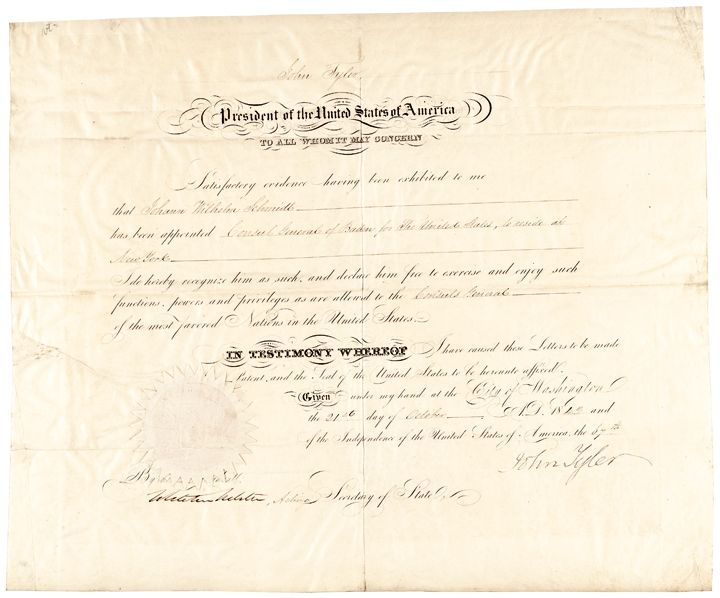 John Tyler
President of the United States of America
TO ALL WHOM IT MAY CONCERN
Satisfactory evidence having been exhibited to me
that Johann Wilhelm Schmidt
has been appointed Consul General of Baden for the United States, to reside at
New York
I do hereby recognize him as such, and declare him free to exercise and enjoy such
functions, powers and privileges as are allowed to the Consuls General
of the most favored Nations in the United States.
IN TESTIMONY WHEREOF I have caused these Letters to be made
Patent, and the Seal of the United States to be hereunto affixed.
Given under my hand at the City of Washington
the 21st day of October A.D. 1842 and
of the Independence of the United States of America, the 67th
John Tyler
By the
Secretary of State